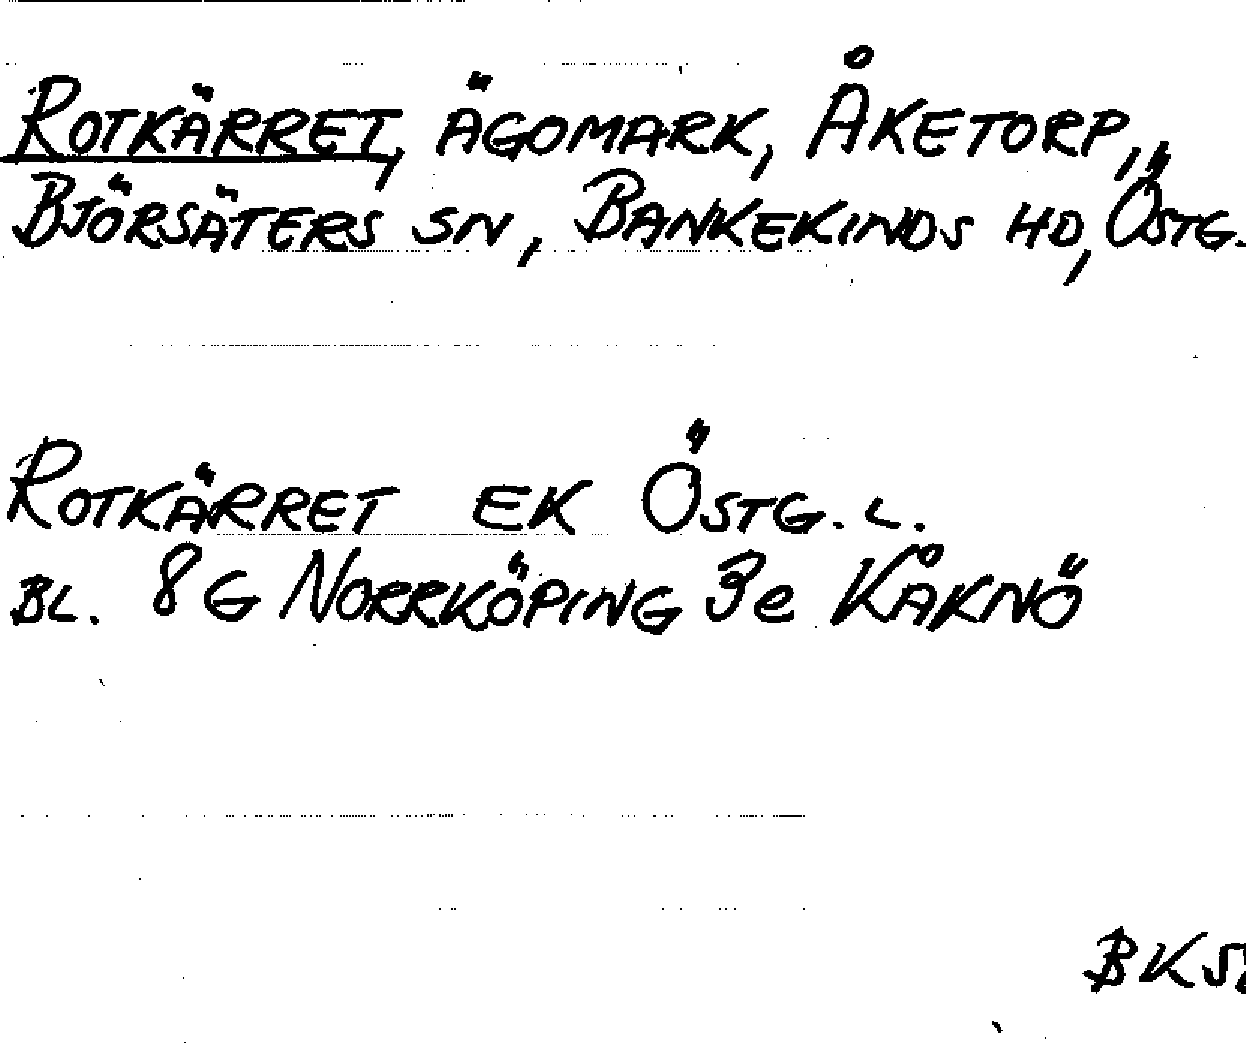 ROTKÄRRET, ÄGOMARK, ÅKETORP,
BJÖRSÄTERS SN, BANKEKINDS HD, ÖSTG.
ROTKÄRRET EK ÖSTG. L.
BL. 8G NORRKÖPING 3e KÅKNÖ